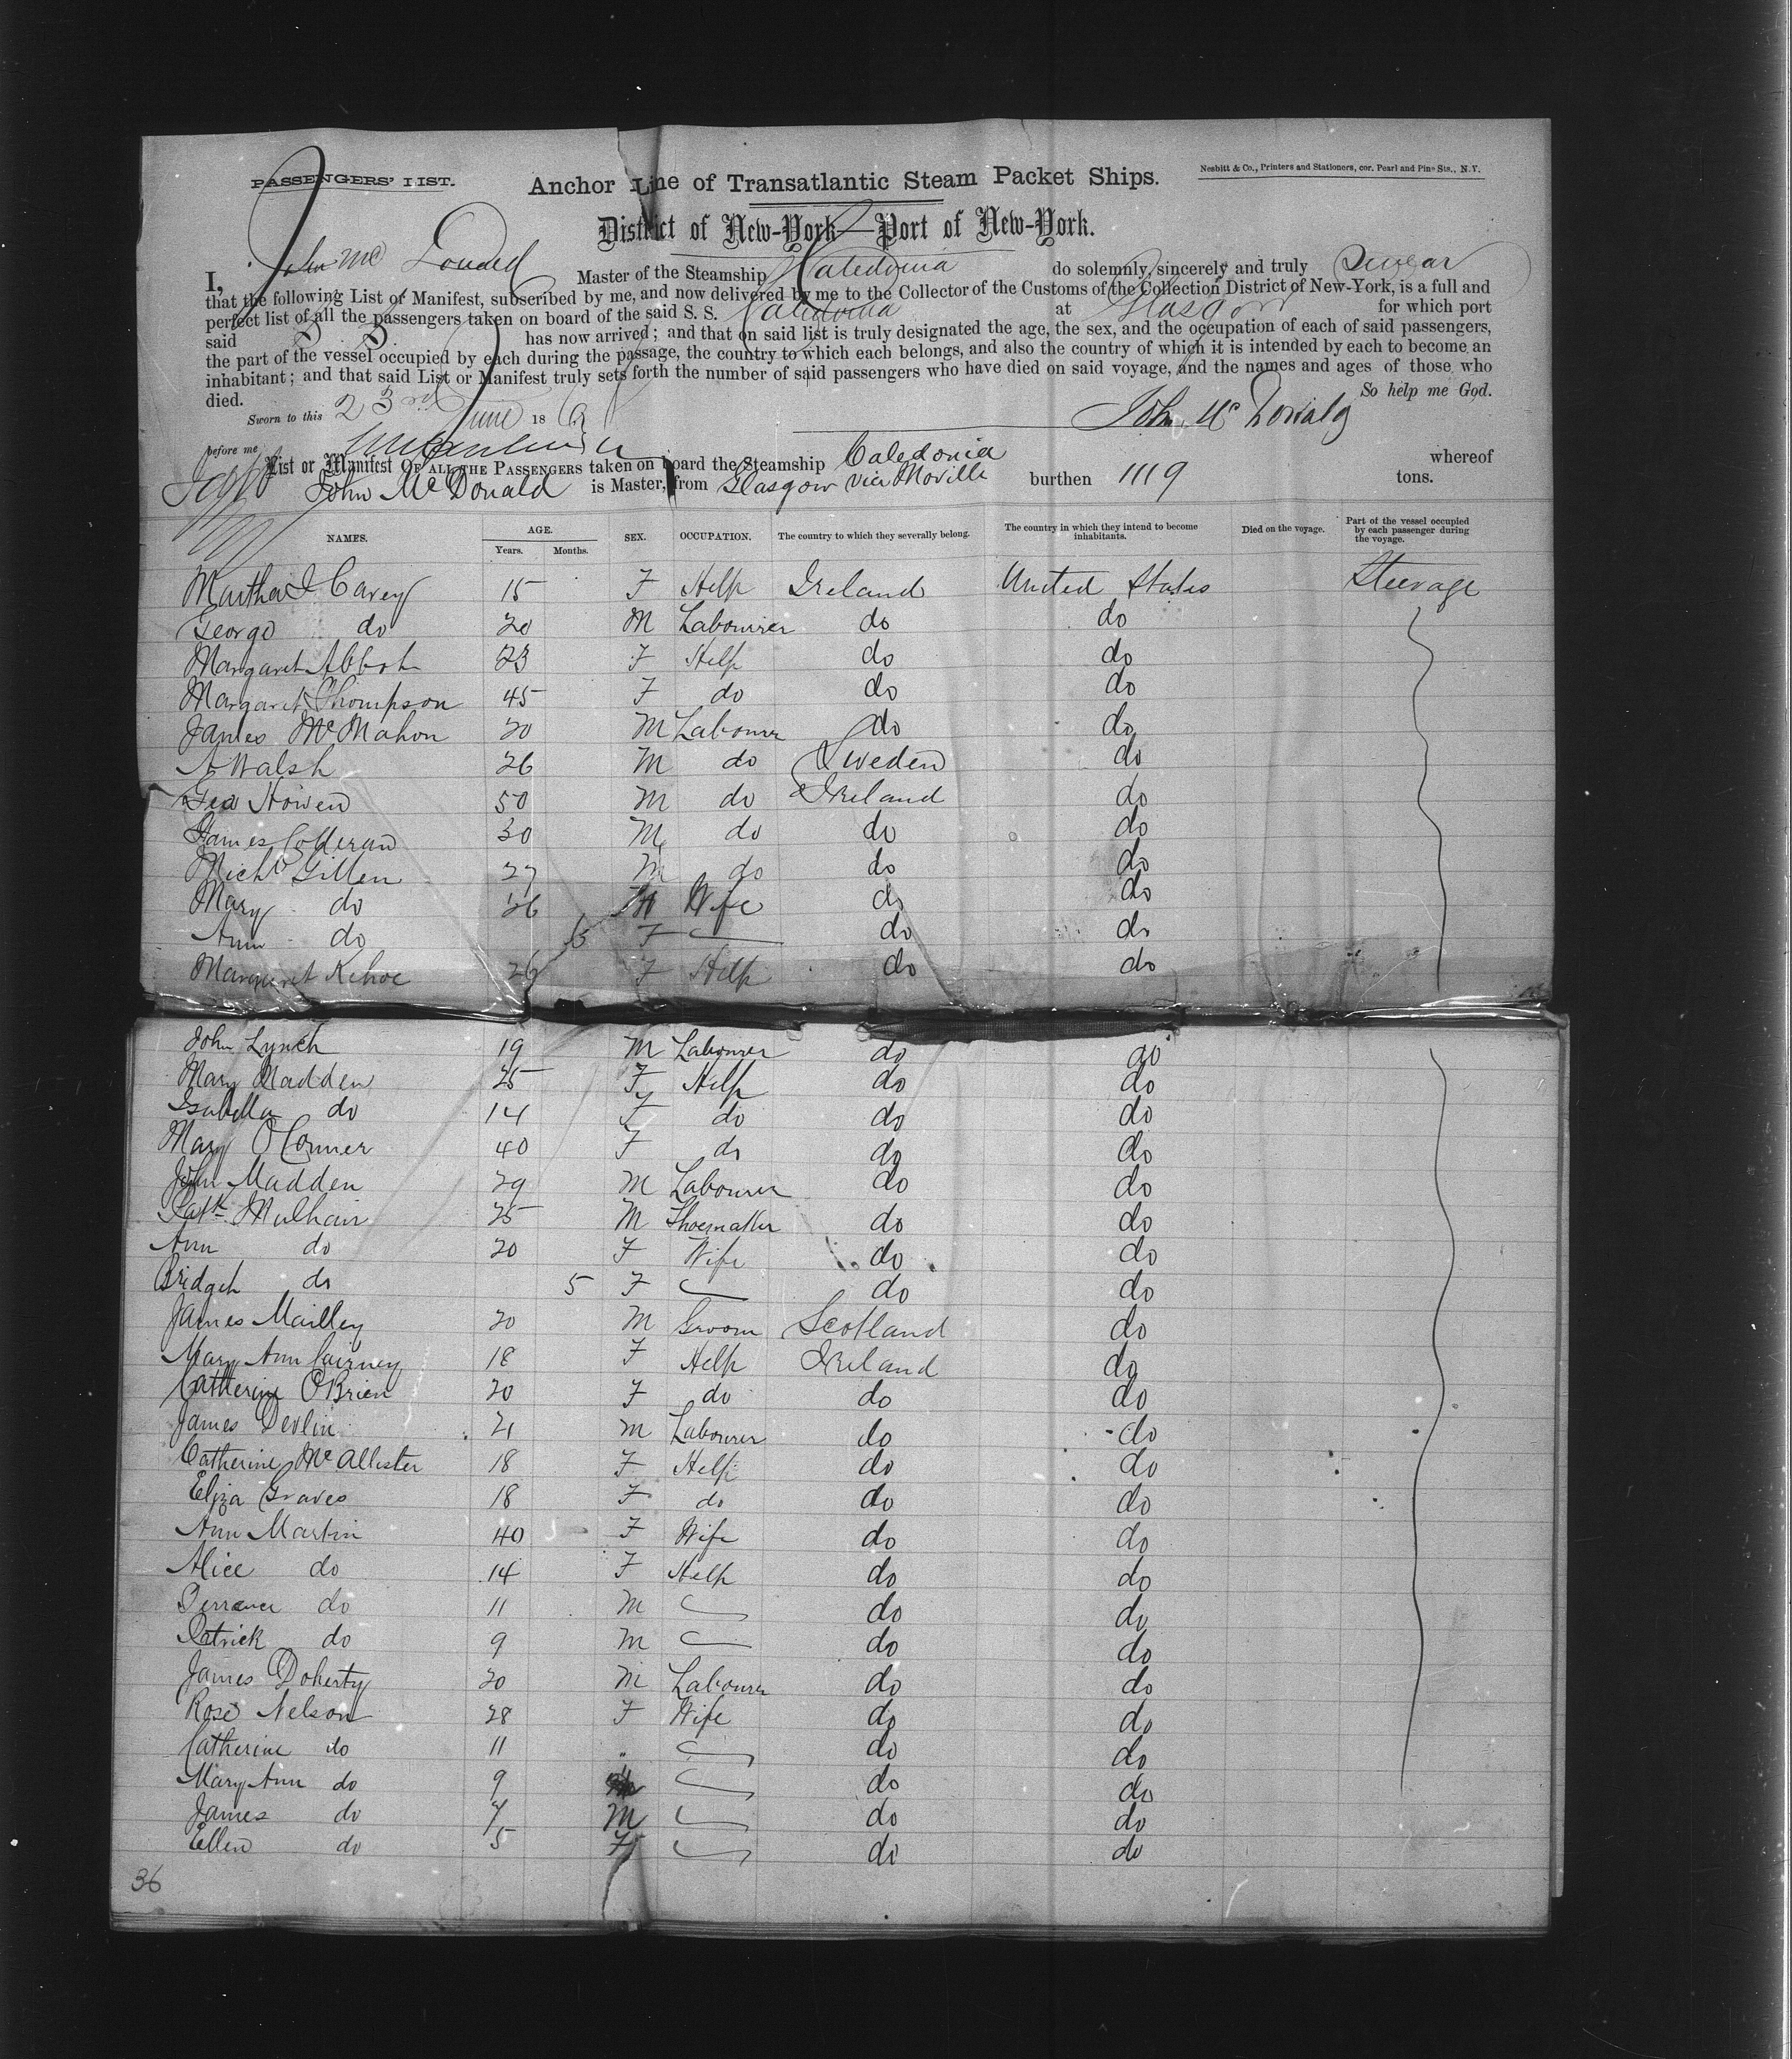 PASSENGERS' LIST.
Anchor Line of Transatlantic Steam Packet Ships.
Nesbitt & Co., Printers and Stationers, cor. Pearl and Pine Sts., N.Y.
District of New-York—Port of New-York.
I, John Mc Donald Master of the Steamship Caledonia do solemnly, sincerely and truly Swear
that the following List or Manifest, subscribed by me, and now delivered by me to the Collector of the Customs of the Collection District of New-York, is a full and
perfect list of all the passengers taken on board of the said S. S. Caledonia at Glasgow for which port
said S. S. has now arrived; and that on said list is truly designated the age, the sex, and the occupation of each of said passengers,
the part of the vessel occupied by each during the passage, the country to which each belongs, and also the country of which it is intended by each to become an
inhabitant; and that said List or Manifest truly sets forth the number of said passengers who have died on said voyage, and the names and ages of those who
died. So help me God.
Sworn to this 23rd June 18 John Mc Donald
before me
List or Manifest OF ALL THE PASSENGERS taken on board the Steamship Caledonia whereof
John McDonald is Master, from Glasgow via Moville burthen 1119 tons.
NAMES. AGE. Years. Months. SEX. OCCUPATION. The country to which they severally belong. The country in which they intend to become inhabitants. Died on the voyage. Part of the vessel occupied by each passenger during the voyage.
Martha J Carey 15 F Help Ireland United States Steerage
George do 20 M Labourer do do
Margaret Abbot 23 F Help do do
Margaret Thompson 45 F do do do
James McMahon 20 M Labourer do do
A Walsh 26 M do Sweden do
Geo Howen 50 M do Ireland do
James Colleran 30 M do do do
Michl Gillen 27 M do do do
Mary do 26 Wife do do
Ann do F do do
Margaret Kehoe 26 F Help do do
John Lynch 19 M Labourer do do
Mary Madden 25 F Help do do
Isabella do 14 F do do do
Mary O'Conner 40 F do do do
John Madden 29 M Labourer do do
Patk Mulhair 25 M Shoemaker do do
Ann do 20 F Wife do do
Bridget do 5 F do do
James Mailley 20 M Groom Scotland do
Mary Ann Cairney 18 F Help Ireland do
Catherine O'Brien 20 F do do do
James Devlin 21 M Labourer do do
Catherine McAllister 18 F Help do do
Eliza Graves 18 F do do do
Ann Martin 40 F Wife do do
Alice do 14 F Help do do
Terrance do 11 M do do
Patrick do 9 M do do
James Doherty 20 M Labourer do do
Rose Nelson 28 F Wife do do
Catherine do 11 " do do
Mary Ann do 9 do do
James do 7 M do do
Ellen do 5 F do do
36